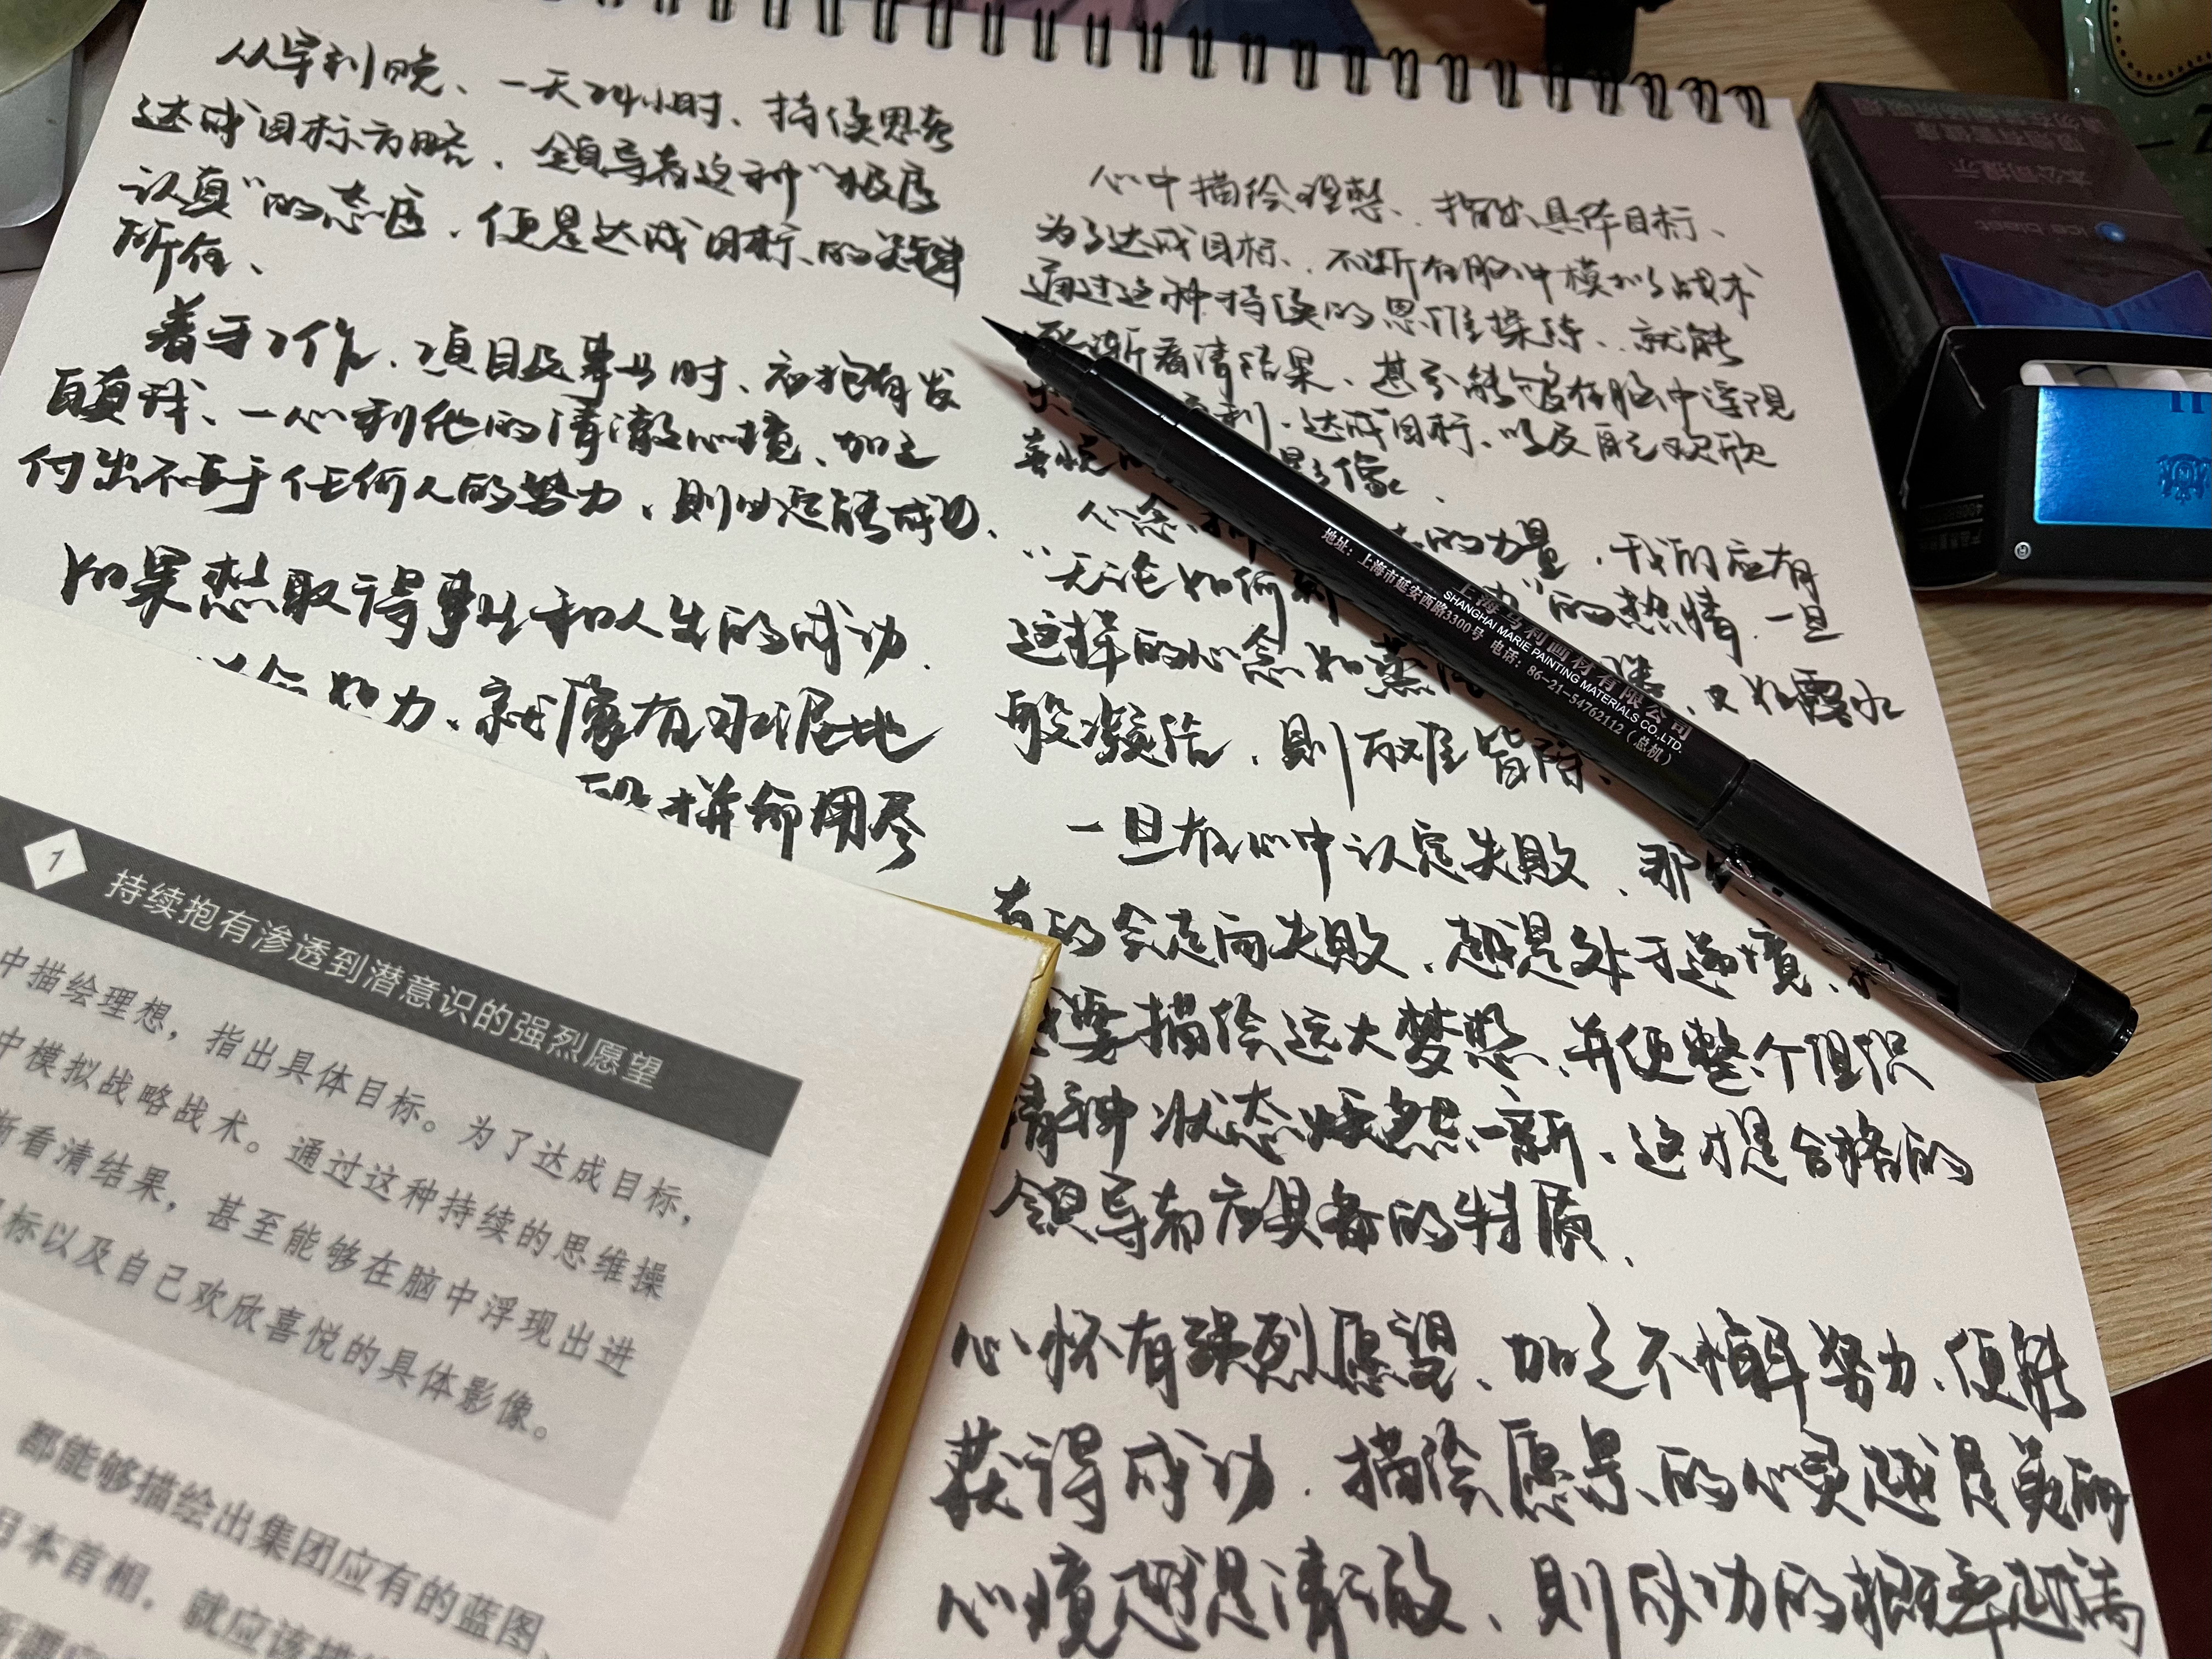 从早到晚、一天24小时、持续思考
达成目标方略、领导者这种“极度
认真”的态度、便是达成目标、的关键
所在、
着手工作、项目及事业时、应抱有发
自真我、一心利他的清澈心境、加之
付出不亚于任何人的努力、则必定能成功、
如果想取得事业和人生的成功、
努力、就像在水泥地
段拼命用尽
心中描绘理想、指出具体目标、
为了达成目标、不断在脑中模拟战术
通过这种持续的思维操练、就能
逐渐看清结果、甚至能够在脑中浮现
利、达成目标、以及自己欢欣
喜悦的 影像、
心念 的力量、我们应有
“无论如何 ”的热情、一旦
这样的心念如蒸 ，又如露水
般凝结、则万难皆除、
一旦在心中认定失败、那
真的会走向失败、越是处于逆境、
要描绘远大梦想、并使整个组织
精神状态焕然一新、这才是合格的
领导者应具备的特质、
心怀有强烈愿望、加之不懈努力、便能
获得成功、描绘愿景、的心灵越是美丽
心境越是清澈、则成功的概率越高
地址：上海市延安西路3300号 电话：86-21-54762112（总机）
上海马利画材有限公司
SHANGHAI MARIE PAINTING MATERIALS CO.,LTD.
7 持续抱有渗透到潜意识的强烈愿望
中描绘理想，指出具体目标。为了达成目标，
中模拟战略战术。通过这种持续的思维操
渐看清结果，甚至能够在脑中浮现出进
标以及自己欢欣喜悦的具体影像。
都能够描绘出集团应有的蓝图、
日本首相，就应该描
本公司提示
吸烟有害健康
请勿在禁烟场所吸烟
ice blast